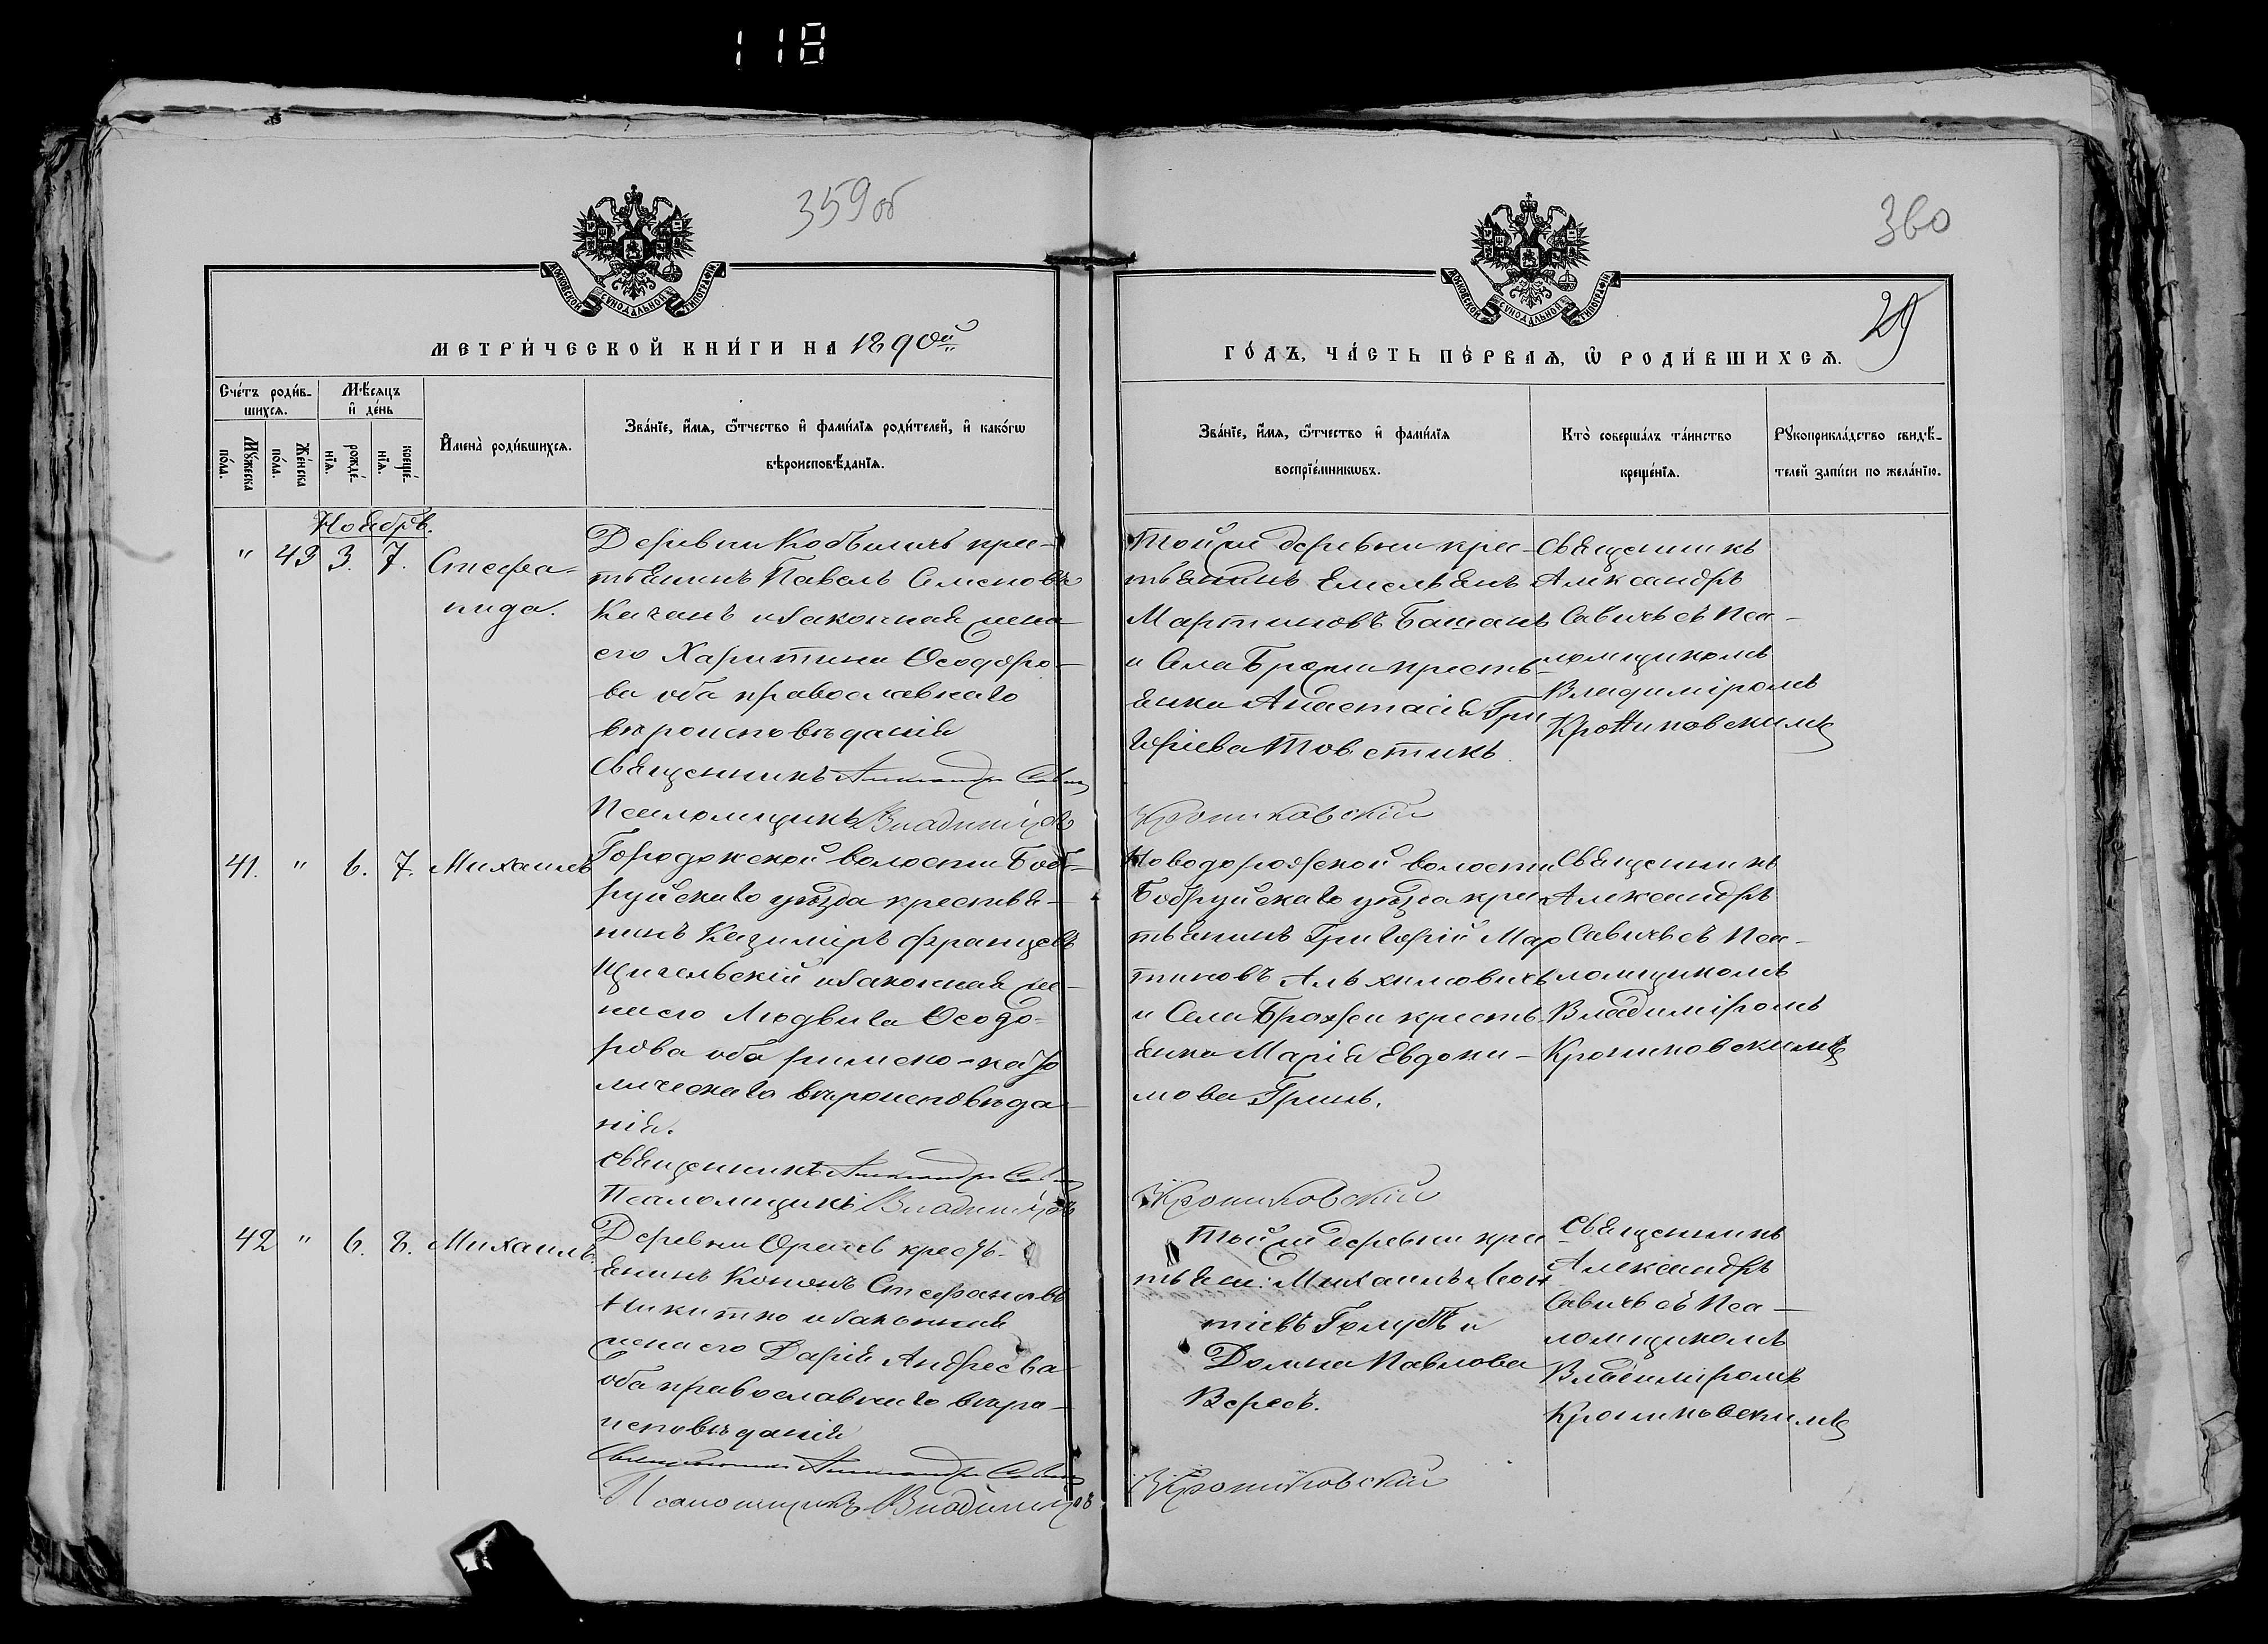 118
359 об
360
29
МОСКОВСКОЙ СУНОДАЛЬНОЙ ТИПОГРАФІИ
МОСКОВСКОЙ СУНОДАЛЬНОЙ ТИПОГРАФІИ
МЕТРИ́ЧЕСКОЙ КНИ́ГИ НА 1890ой
ГО́ДЪ, ЧА́СТЬ ПЕ́РВАѦ, Ѽ РОДИ́ВШИХСѦ.
Счéтъ роди́в-
шихсѧ.
Мꙋ́жеска
по́ла.
Же́нска
по́ла.
Мѣ́сѧцъ
и҆ де́нь
рожде́-
нїѧ.
креще́-
нїѧ.
И҆мена̀ роди́вшихсѧ.
Зва́нїе, и҆́мѧ, ѻ҆́тчество и҆ фами́лїѧ роди́телей, и҆ како́гѡ
вѣроисповѣ́данїѧ.
Зва́нїе, и҆́мѧ, ѻ҆́тчество и҆ фами́лїѧ
воспрїе́мникѡвъ.
Кто̀ соверша́лъ та́инство
креще́нїѧ.
Рꙋкоприкла́дство свидѣ́-
телей за́писи по жела́нїю.
Ноябрь.
" 43 3. 7.
Стефа-
нида.
Деревни Кобыличъ крес-
тьянинъ Павелъ Семеновъ
Качанъ и законная жена
его Харитина Ѳеодоро-
ва оба православнаго
вѣроисповѣданія
Священникъ Александръ Савичъ
Псаломщикъ Владиміръ
Той же деревни крес-
тьянинъ Емельянъ
Мартиновъ
и села Брожи кресть-
янка Анастасія Гри
горіева Товстикъ
Крониковскій
Священникъ
Александръ
Савичъ съ Пса-
ломщикомъ
Владиміромъ
Крониковскимъ
41. " 6. 7. Михаилъ
Городокской волости Боб-
руйскаго уѣзда крестья-
нинъ Казиміръ Францевъ
Щигельскій и законная же-
на его Людвига Ѳеодо-
рова оба римско-като
лическаго вѣроисповѣда-
нія.
Священникъ Александръ Савичъ
Псаломщикъ Владиміръ
Новодорожской волости
Бобруйскаго уѣзда крес
тьянинъ Григорій Мар
тиновъ Альхимовичъ
и села Брожи кресть-
янка Марія Евдоки-
мова Гринь.
Крониковскій
Священникъ
Александръ
Савичъ съ Пса-
ломщикомъ
Владиміромъ
Крониковскимъ
42 " 6. 8. Михаилъ.
Деревни кресть-
янинъ Кононъ Стефановъ
Никитко и законная
жена его Дарія Андреева
оба православнаго вѣро-
исповѣданія
Священникъ Александръ Савичъ
Псаломщикъ Владиміръ
Той же деревни крес
тьян: Михаилъ Леон
тіевъ Голубъ и
Домна Павлова
Вересъ.
Крониковскій
Священникъ
Александръ
Савичъ съ Пса-
ломщикомъ
Владиміромъ
Крониковскимъ